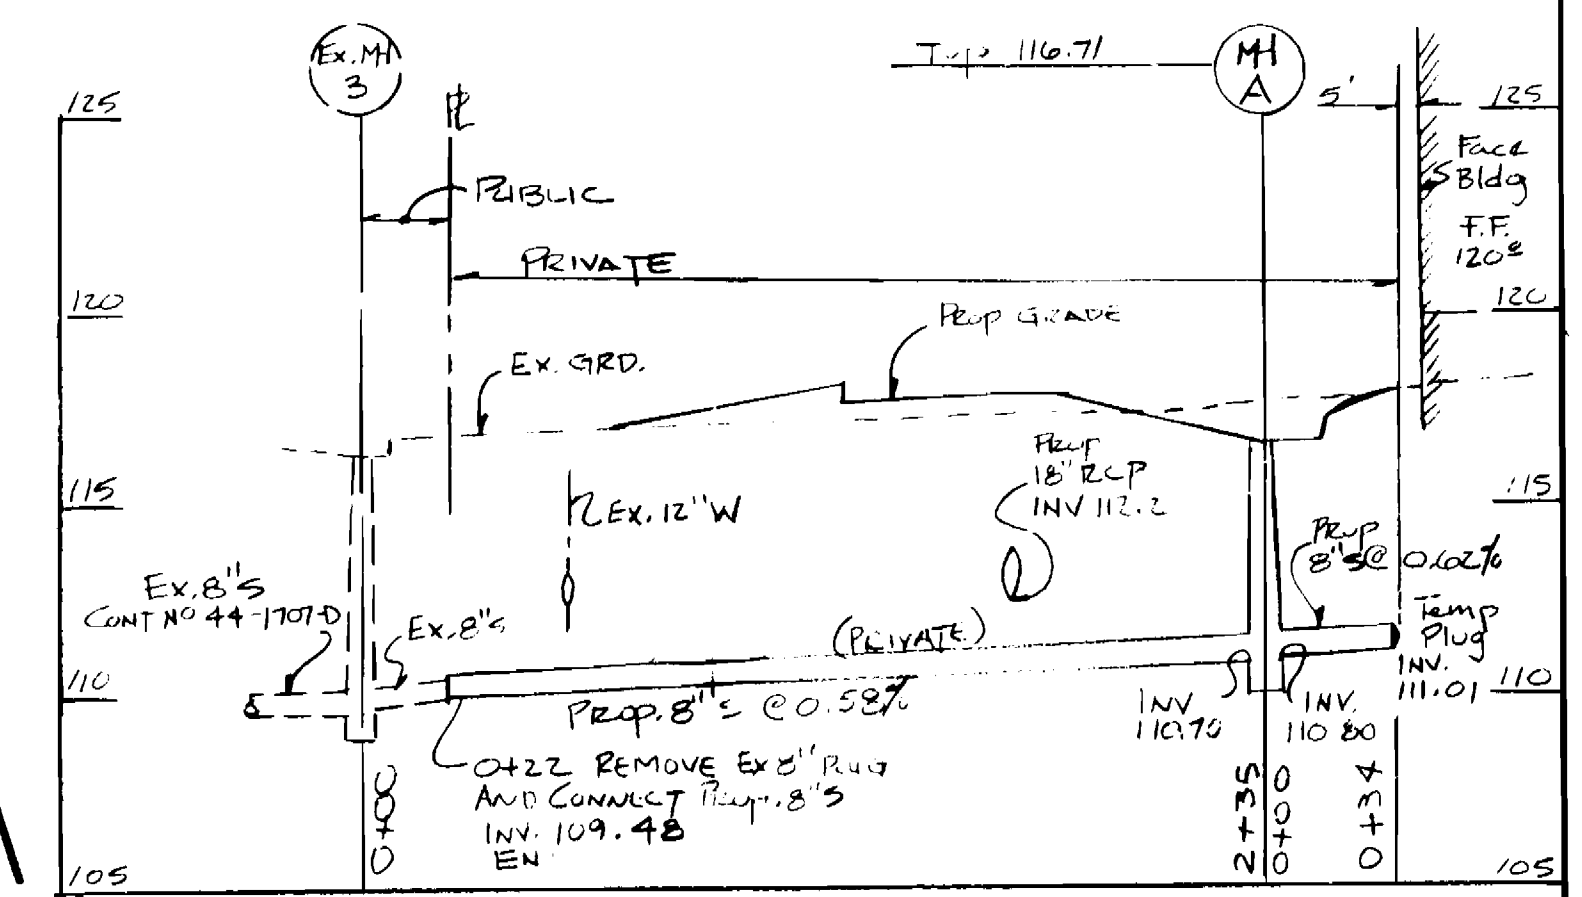 Ex. MH
3
Top 116.71
MH
A
5'
125
125
PUBLIC
Face
Bldg
F.F.
120
PRIVATE
120
120
Prop GRADE
Ex. GRD.
Prop
18" RCP
INV 112.2
115
115
Ex. 12" W
Prop
8"S @ 0.62%
Ex. 8"S
CONT NO 44-1707-D
Ex. 8"S
(PRIVATE)
Temp
Plug
INV.
111.01
110
110
PROP. 8"S @ 0.58%
INV
110.70
INV.
110.80
0+22 REMOVE Ex 8" Plug
AND CONNECT Prop. 8"S
INV. 109.48
EN
0+00
2+35
0+00
0+34
105
105